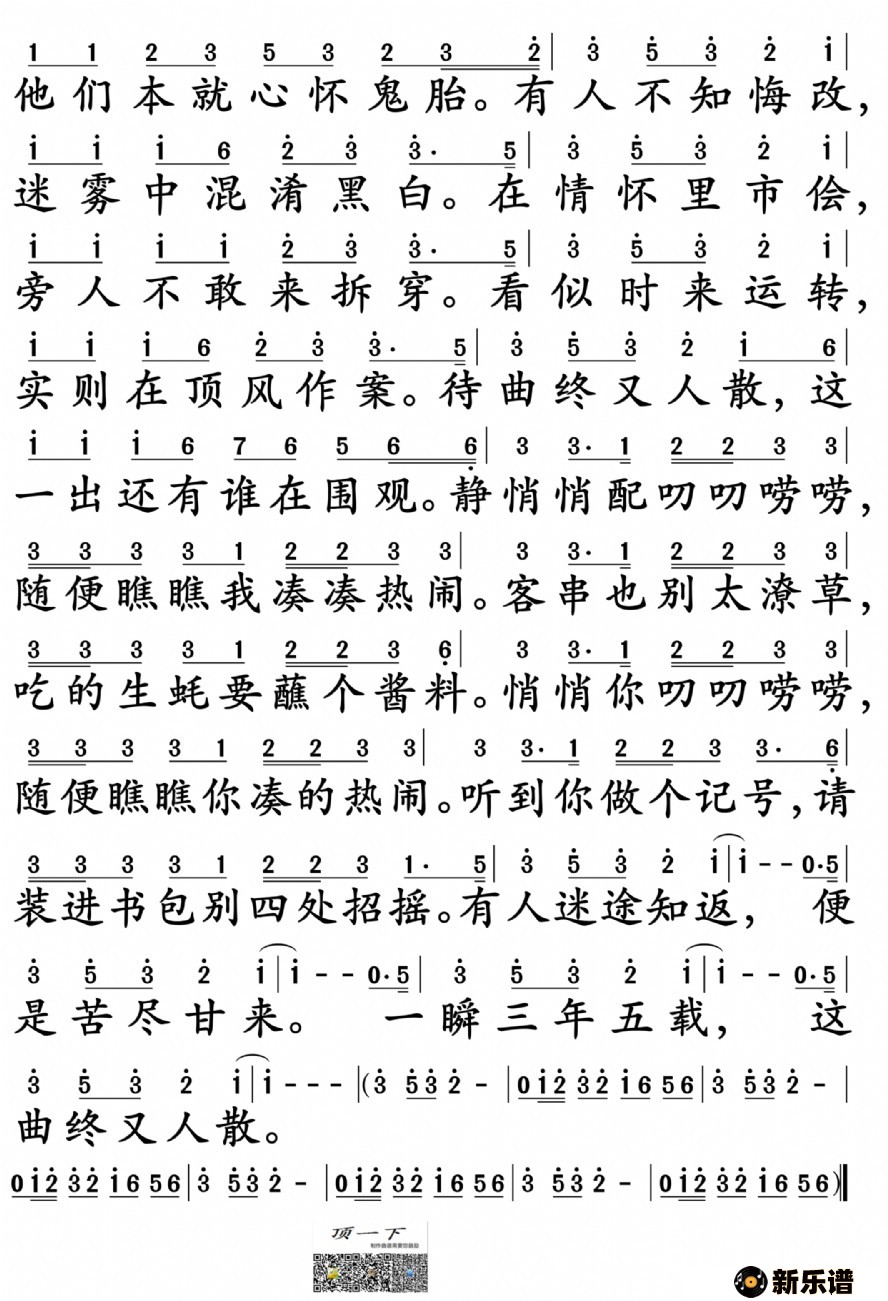 1 1 2 3 5 3 2 3 2̇ | 3̇ 5̇ 3̇ 2̇ i |
他们本就心怀鬼胎。有人不知悔改,
i i i 6 2̇ 3̇ 3̇· 5 | 3̇ 5̇ 3̇ 2̇ i |
迷雾中混淆黑白。在情怀里市侩,
i i i i 2̇ 3̇ 3̇· 5 | 3̇ 5̇ 3̇ 2̇ i |
旁人不敢来拆穿。看似时来运转,
i i i 6 2̇ 3̇ 3̇· 5 | 3̇ 5̇ 3̇ 2̇ i 6 |
实则在顶风作案。待曲终又人散,这
i i i 6 7 6 5 6 6̣ | 3 3· 1 2 2 3 3 |
一出还有谁在围观。静悄悄配叨叨唠唠,
3 3 3 3 1 2 2 3 3 | 3 3· 1 2 2 3 3 |
随便瞧瞧我凑凑热闹。客串也别太潦草,
3 3 3 3 1 2 2 3 6̣ | 3 3· 1 2 2 3 3 |
吃的生蚝要蘸个酱料。悄悄你叨叨唠唠,
3 3 3 3 1 2 2 3 3 | 3 3· 1 2 2 3 3· 6̣ |
随便瞧瞧你凑的热闹。听到你做个记号,请
3 3 3 3 1 2 2 3 1· 5 | 3̇ 5̇ 3̇ 2̇ i | i - - 0·5 |
装进书包别四处招摇。有人迷途知返, 便
3̇ 5̇ 3̇ 2̇ i | i - - 0·5 | 3̇ 5̇ 3̇ 2̇ i | i - - 0·5 |
是苦尽甘来。 一瞬三年五载, 这
3̇ 5̇ 3̇ 2̇ i | i - - - | (3̇ 5̇3̇ 2̇ - | 0i2̇ 3̇2̇ i6 56 | 3̇ 5̇3̇ 2̇ - |
曲终又人散。
0i2̇ 3̇2̇ i6 56 | 3̇ 5̇3̇ 2̇ - | 0i2̇ 3̇2̇ i6 56 | 3̇ 5̇3̇ 2̇ - | 0i2̇ 3̇2̇ i6 56)‖
顶一下
制作曲谱需要您鼓励
新乐谱